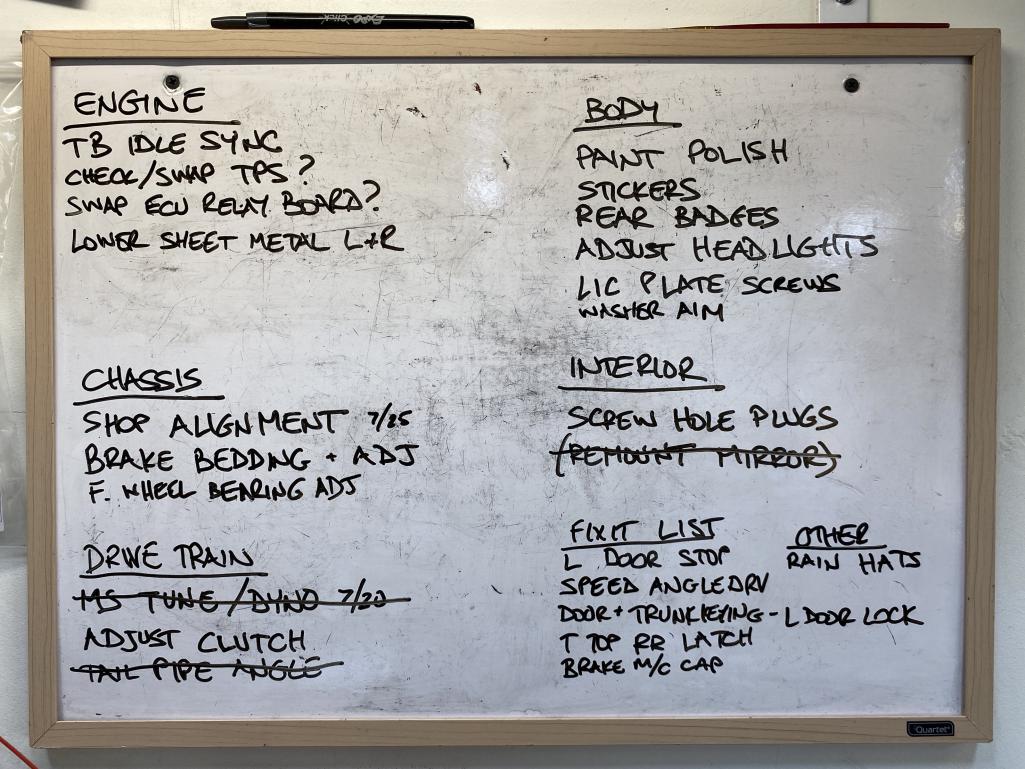 EXPO CLICK
ENGINE
TB IDLE SYNC
CHECK/SWAP TPS?
SWAP ECU RELAY BOARD?
LOWER SHEET METAL L+R
CHASSIS
SHOP ALIGNMENT 7/25
BRAKE BEDDING + ADJ
F. WHEEL BEARING ADJ
DRIVE TRAIN
MS TUNE/DYNO 7/20
ADJUST CLUTCH
TAIL PIPE ANGLE
BODY
PAINT POLISH
STICKERS
REAR BADGES
ADJUST HEADLIGHTS
LIC PLATE SCREWS
WASHER AIM
INTERIOR
SCREW HOLE PLUGS
(REMOUNT MIRROR)
FIXIT LIST
L DOOR STOP
SPEED ANGLE DRV
DOOR + TRUNK KEYING - L DOOR LOCK
T TOP RR LATCH
BRAKE M/C CAP
OTHER
RAIN HATS
Quartet